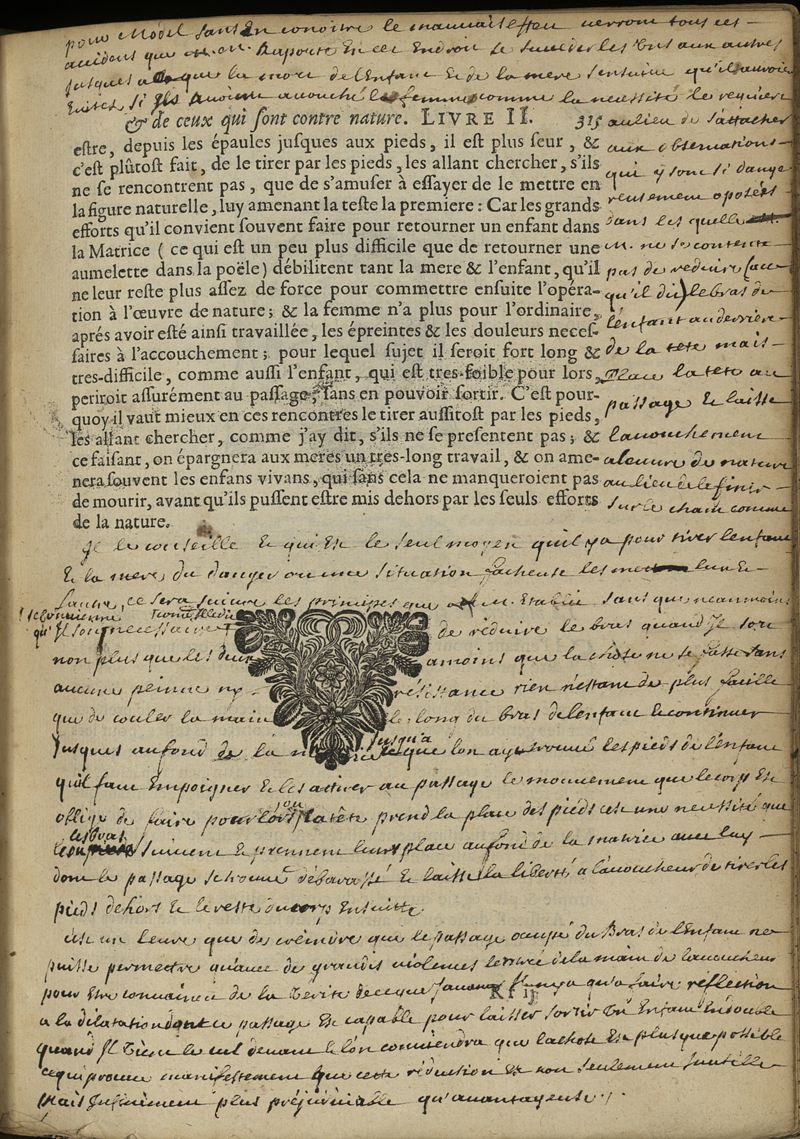 pour Model sans En conoitre le mauuais effeu uerront tous ces
accident que m. m. Raporte En cet Endroit se succeder les Uns aux autres
jusques a ce que la mort de l'Enfant Et de la mere s'ensuiue qu'il auroit
Euités si Ils auoient acouché la femme comme la necessité le requiere
& de ceux qui sont contre nature. LIVRE II. 315
au lieu de s'attacher
estre, depuis les épaules jusques aux pieds, il est plus seur, &
aux obseruations
c'est plûtost fait, de le tirer par les pieds, les allant chercher, s'ils
qui y sont si dange
ne se rencontrent pas, que de s'amuser à essayer de le mettre en
reusement oposées
la figure naturelle, luy amenant la teste la premiere : Car les grands
dans les quelle
efforts qu'il convient souvent faire pour retourner un enfant dans
M. ne se contente
la Matrice ( ce qui est un peu plus difficile que de retourner une
pas de reduire (au
aumelette dans la poële) débilitent tant la mere & l'enfant, qu'il
qu'il dit) le bras de
ne leur reste plus assez de force pour commettre ensuite l'opéra-
l'enfant au derriere
tion à l'œuvre de nature; & la femme n'a plus pour l'ordinaire,
de la tete mais
aprés avoir esté ainsi travaillée, les épreintes & les douleurs neces-
Place la tete au
saires à l'accouchement ; pour lequel sujet il seroit fort long &
passage Et laisse
tres-difficile, comme aussi l'enfant, qui est tres-foible pour lors,
lacouchement
periroit assurément au passage, sans en pouvoir sortir. C'est pour-
a leuure de nature
quoy il vaut mieux en ces rencontres le tirer aussitost par les pieds,
au lieu de le finir
les allant chercher, comme j'ay dit, s'ils ne se presentent pas ; &
sur le cham comme
ce faisant, on épargnera aux meres un tres-long travail, & on ame-
nera souvent les enfans vivans, qui sans cela ne manqueroient pas
de mourir, avant qu'ils pussent estre mis dehors par les seuls efforts
de la nature.
Je le conseille Et qui Est le seul moyen quil ya pour tirer lenfant
Et la mere du danger ou une situation facheuse les met lun Et
Lautre, ce sera suiure les principes que M. Etablit sans que neanmoins
qu'Il soit necessaire de reduire le bras quand Il sort
non plus que les deux amoins que la chose ne se fasse sans
aucune peinne ny resistance rien n'estant de plus facille
que de couler la main le long du bras de lenfant Et continuer
Jusques au fond de la jusqu'a ce que lon aye trouué les pieds de l'enfant
quil faut Empoigner Et les attirer au passage le mouuement que le corps Est
oblige de faire pour lors ou la tête prend la place des pieds est une necessité que
les bras suiuent Et prennent leurs place au fond de la matrice auec luy
dont le passage se trouue débarassé Et laisse la liberté a lacoucheur de tirer les
pieds dehors Et le reste du corps Ensuitte
C'est un leure que de creindre que le Passage occupé du Bras de l'Enfant ne
puisse permettre qu'auec de grandes uiolences lentrée de la main de lacoucheur
pour Etre conuaincu de la Verité de ce que Jauance Il ny a qu'a faire reflection
Kr ij
a la dilatation dont ce passage Est capable pour laisser sortir Un Enfant En double
quand Il Vien le cul deuant Et lon conuiendra que la chose Est plus que possible
ce qui prouue manifestement que cette reduction Est non seulement Inutille
Mais Infiniment plus prejudiciable qu'auantageuse.